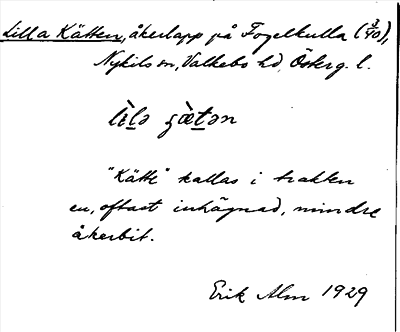 Lilla Kätten, åkerlapp på Fogelkulla (3/40),
Nykils sn, Valkebo hd, Österg. l.
"Kätte" kallas i trakten
en, oftast inhägnad, mindre
åkerbit.
Erik Alm 1929